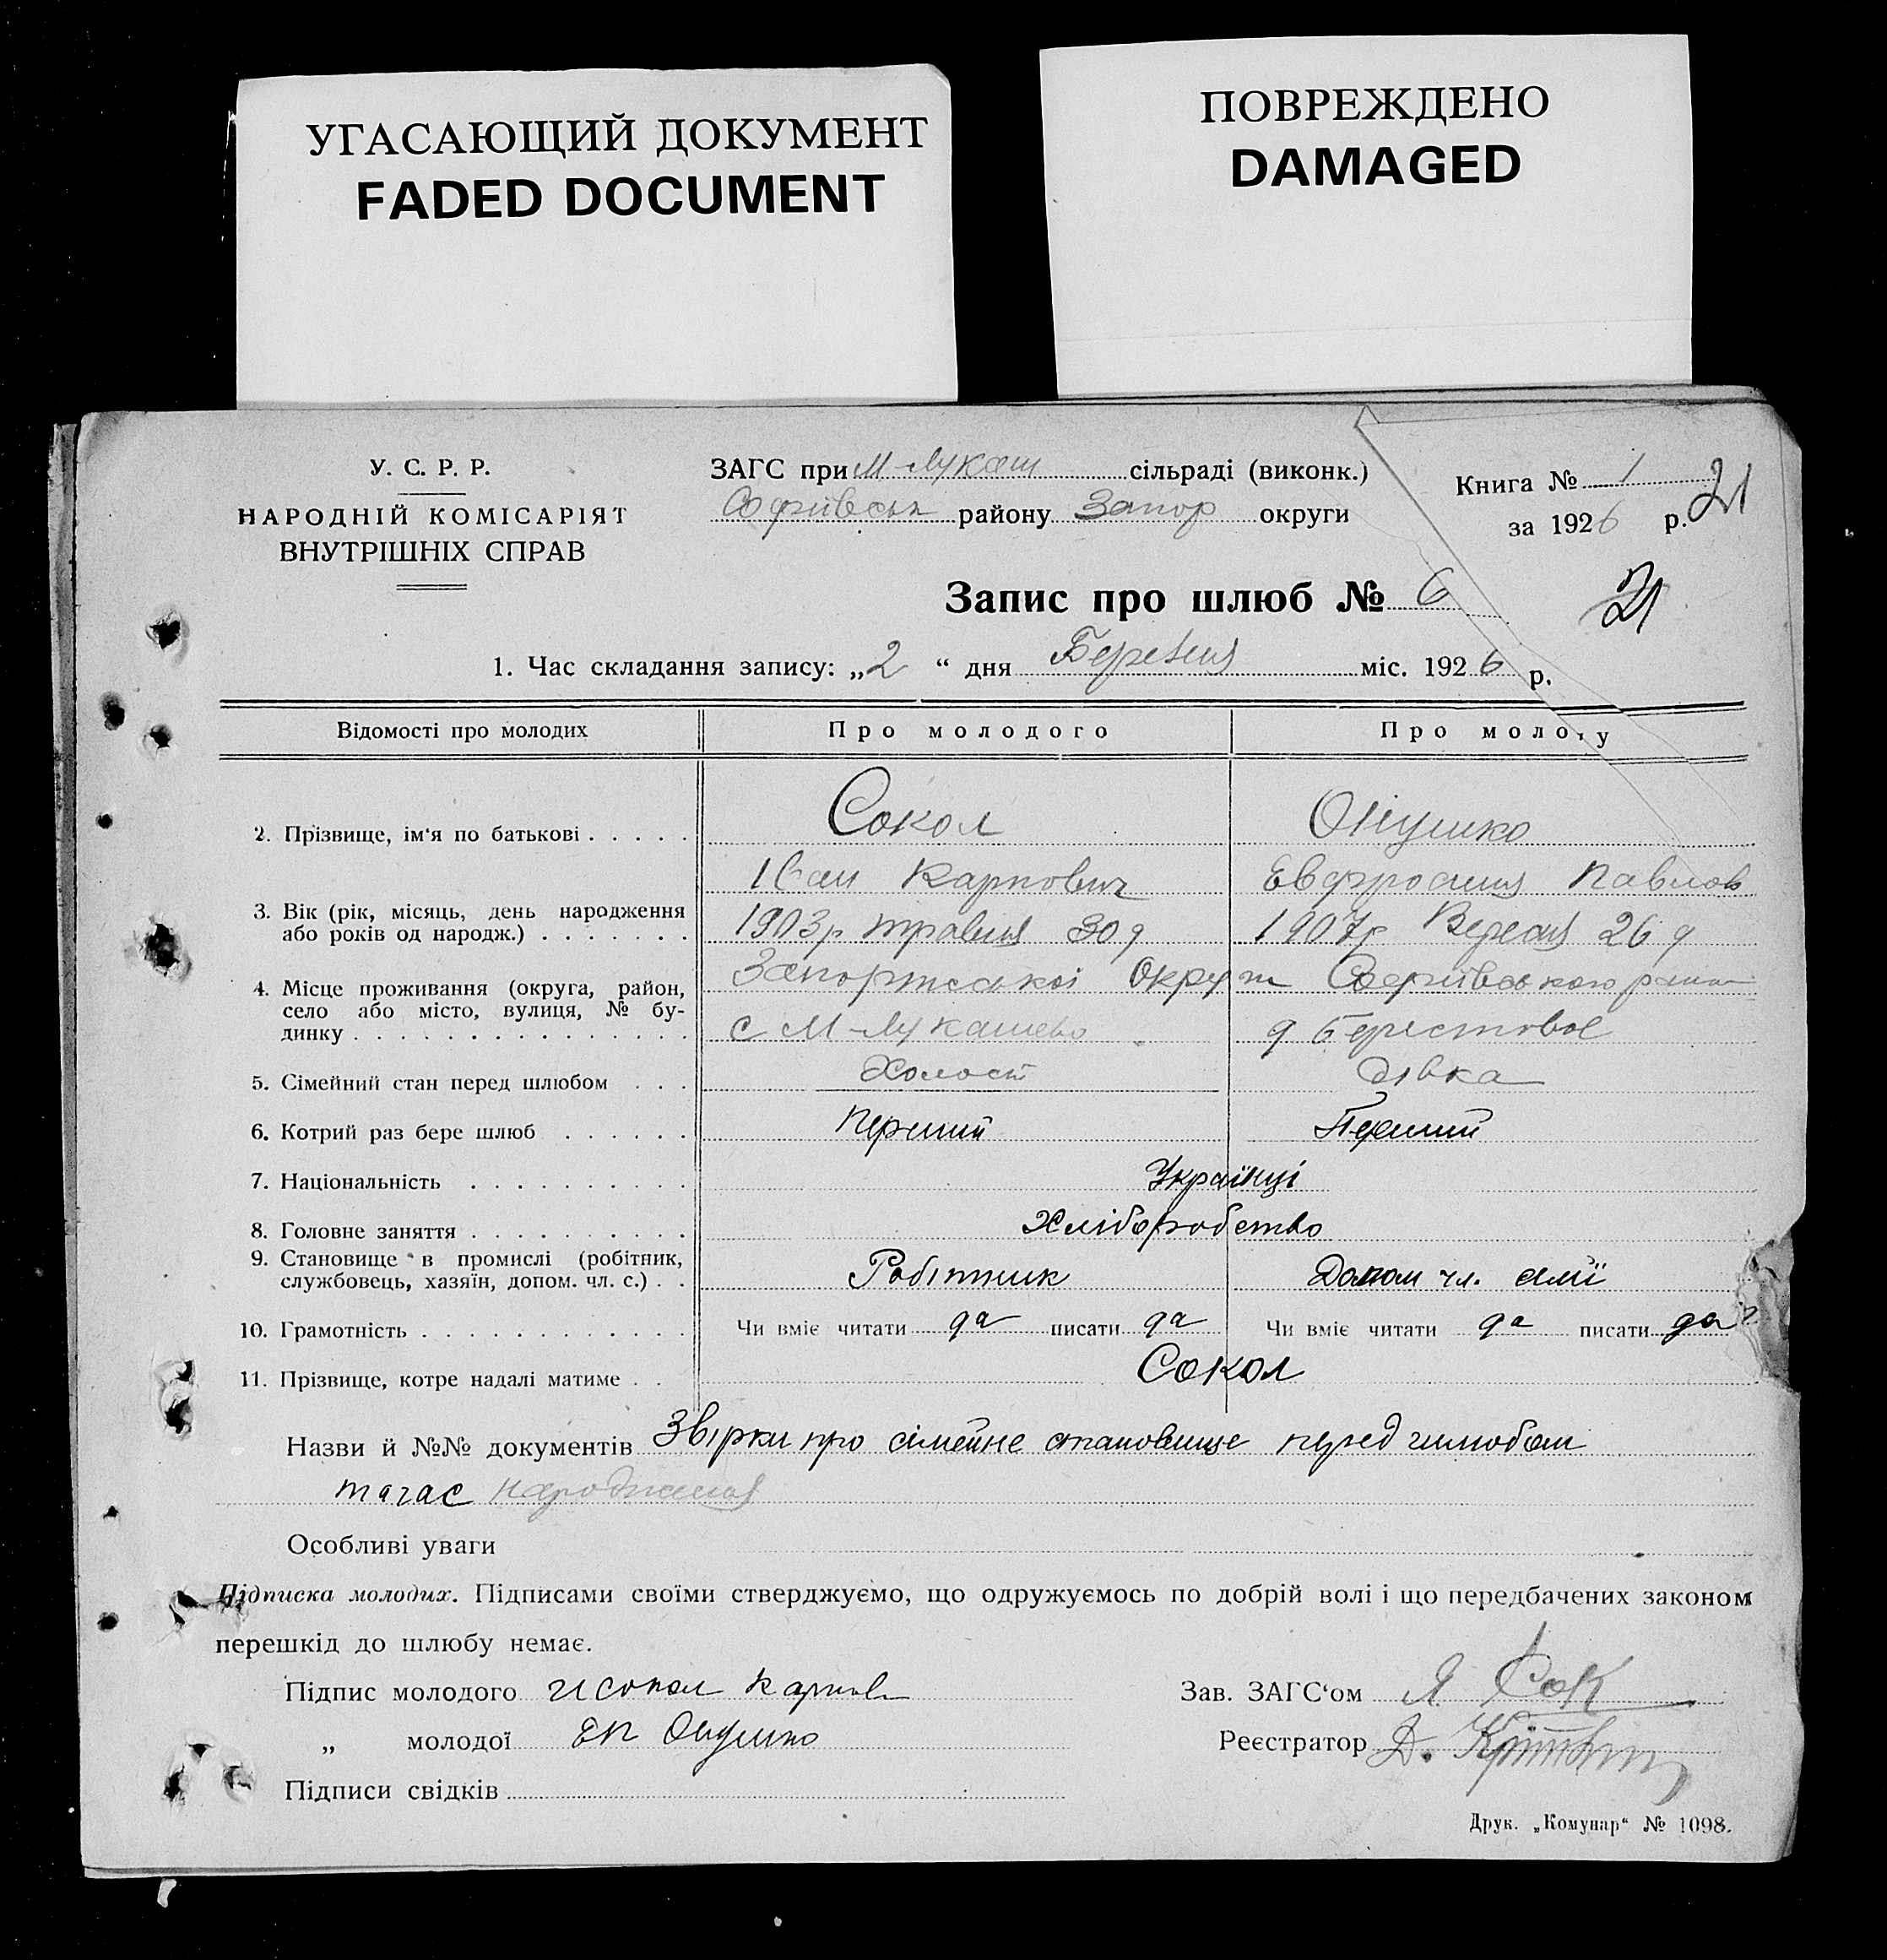 УГАСАЮЩИЙ ДОКУМЕНТ
FADED DOCUMENT
ПОВРЕЖДЕНО
DAMAGED
У. С. Р. Р.
НАРОДНІЙ КОМІСАРІЯТ
ВНУТРІШНІХ СПРАВ
ЗАГС при М-Лукаш сільраді (виконк.)
Софиївськ району Запор округи
Книга № 1
за 1926 р.
21
Запис про шлюб № 6
21
1. Час складання запису: „2 “ дня Березня міс. 1926 р.
Відомості про молодих Про молодого Про молоду
2. Прізвище, ім'я по батькові . . . . . Сокол Онушко
Іван Карпович Евфросиня Павлов
3. Вік (рік, місяць, день народження 1903р травня 30 д 1907р Вересня 26 д
або років од народж.) . . . . . . .
4. Місце проживання (округа, район, Запоріжської Округи Софиївського
село або місто, вулиця, № бу- с М-Лукашево Берестовое
динку . . . . . . . . . . . . . . .
5. Сімейний стан перед шлюбом . . . Холост дівка
6. Котрий раз бере шлюб . . . . . . Перший Перший
7. Національність . . . . . . . . . . Українці
8. Головне заняття . . . . . . . . . . Хліборобство
9. Становище в промислі (робітник, Робітник Допом чл. сімї
службовець, хазяїн, допом. чл. с.) . .
10. Грамотність . . . . . . . . . . . . Чи вміє читати да писати да Чи вміє читати да писати да
11. Прізвище, котре надалі матиме . . Сокол
Назви й №№ документів Звірки про сімейне становище перед шлюбом
та час народження
Особливі уваги
Підписка молодих. Підписами своїми стверджуємо, що одружуємось по добрій волі і що передбачених законом
перешкід до шлюбу немає.
Підпис молодого И Сокол Зав. ЗАГС'ом Я Сок
„ молодої ЕП Онушко Реєстратор Д.
Підписи свідків
Друк. „Комунар“ № 1098.